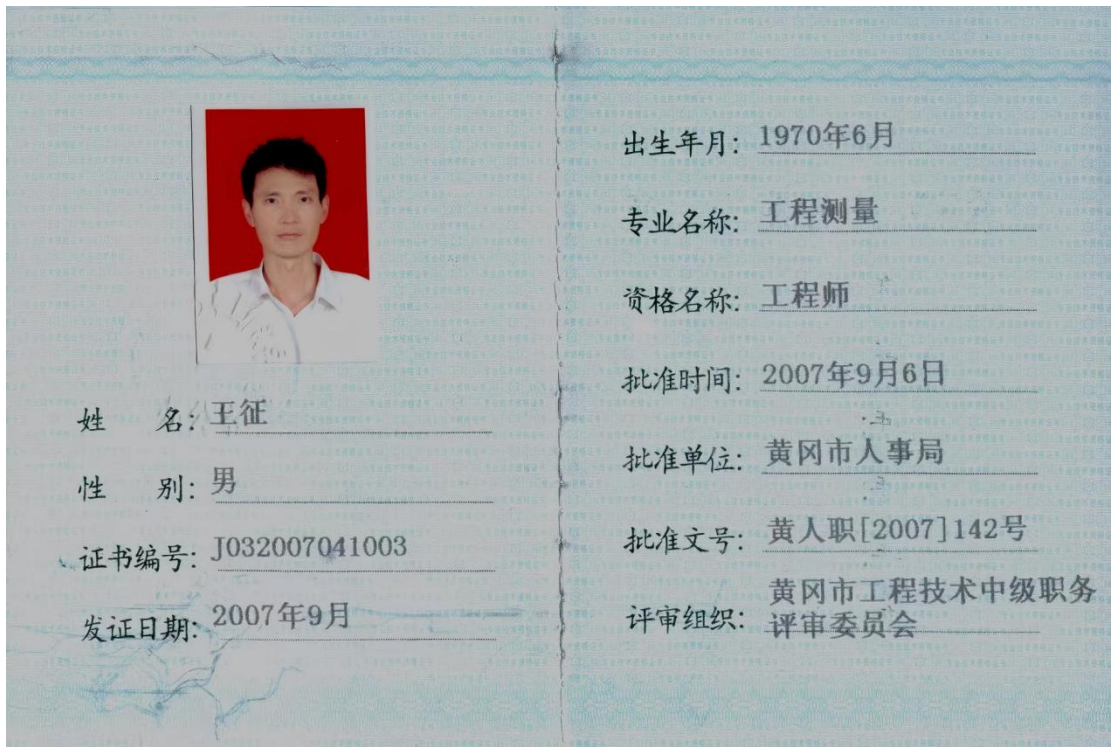 姓 名: 王征
性 别: 男
证书编号: J032007041003
发证日期: 2007年9月
出生年月: 1970年6月
专业名称: 工程测量
资格名称: 工程师
批准时间: 2007年9月6日
批准单位: 黄冈市人事局
批准文号: 黄人职[2007]142号
评审组织: 黄冈市工程技术中级职务
评审委员会